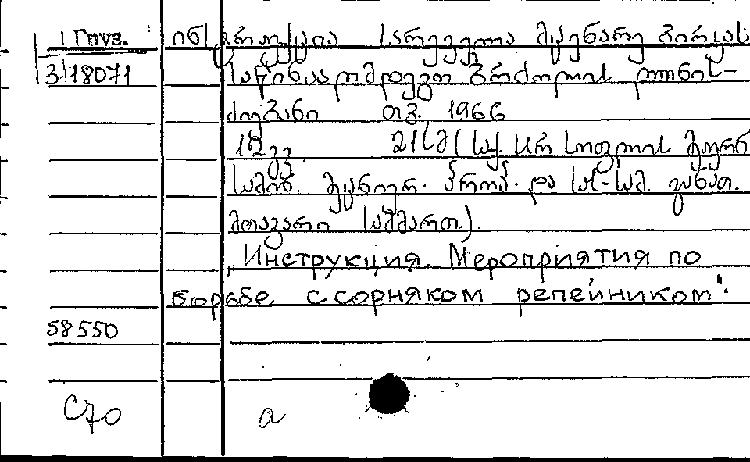 Гпуз. ინსტრუქცია სარეველა მცენარე ბირკას
3/18071 საწინააღმდეგო ბრძოლის ღონის-
ძიებანი თბ. 1966
12გვ. 21სმ (საქ. სსრ სოფლის მეურნ.
სამინ. მეცნიერ. პროპ. და სას-სამ. განათ.
მთავარი სამმართ.).
„Инструкция. Мероприятия по
борьбе с сорняком репейником".
58550
C70 a